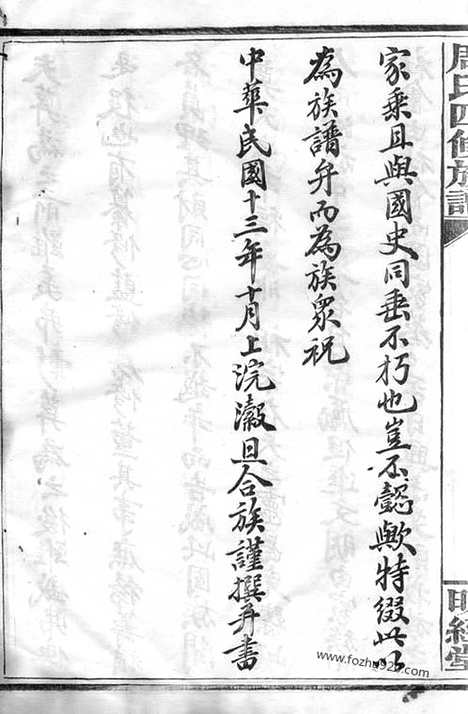 周氏四修族譜
明經堂
家乘且與國史同垂不朽也豈不懿歟特綴此以
為族譜弁而為族眾祝
中華民國十三年十月上浣瀫旦合族謹撰弁書
www.fozhu920.com